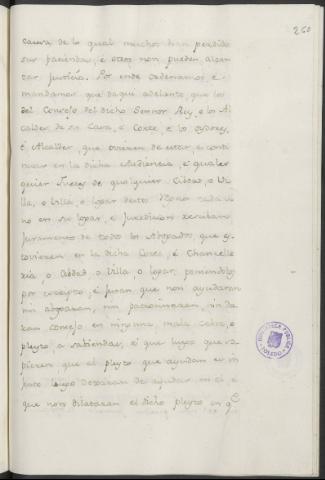 260
causa de lo qual muchos han perdido
sus faciendas, è otros non pueden alcan
zar justicia. Por ende ordenamos, è
mandamos que daqui adelante que los
del Consejo del dicho Sennor Rey, e los Al
caldes de su Casa, e Corte, e los oydores,
è Alcaldes, que ovieren de estar, e conti
nuar en la dicha Audiencia, è quales
quier Jueces de qualquier Cibdad, o Vi
lla, o Villas, o logar destos Regnos cada u
no en su logar, è Jurediccion resciban
Juramento de todos los Abogados que es
tovieren en la dicha Corte, è Chancelle
ria, o Cibdad, o Villa, o logar, poniendolo
por excepto, è juren que non ayudaran
nin abogaran, nin patrocinaran, nin da
ran consejo en ninguna mala cabsa, o
pleyto, a sabiendas, è que luego que so
pieren que el pleyto que ayudan es in
justo luego dexaran de ayudar en el, è
que non dilataran el dicho pleyto en q.e
BIBLIOTECA PUBLICA
TOLEDO